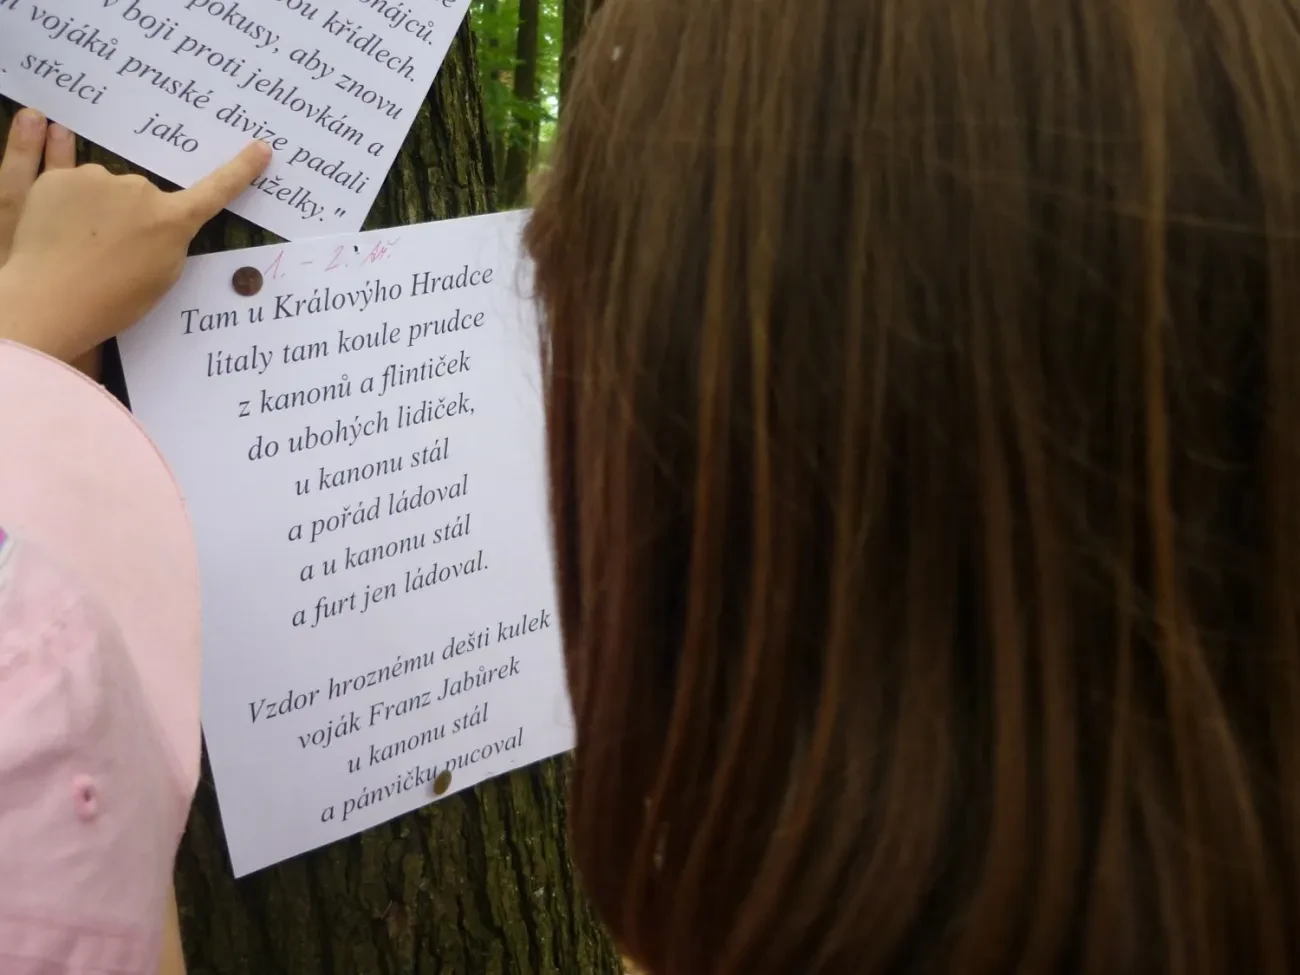 onájců.
ou křídlech.
pokusy, aby znovu
v boji proti jehlovkám a
vojáků pruské divize padali
střelci jako uželky."
1. - 2. tř.
Tam u Královýho Hradce
lítaly tam koule prudce
z kanonů a flintiček
do ubohých lidiček,
u kanonu stál
a pořád ládoval
a u kanonu stál
a furt jen ládoval.
Vzdor hroznému dešti kulek
voják Franz Jabůrek
u kanonu stál
a pánvičku pucoval